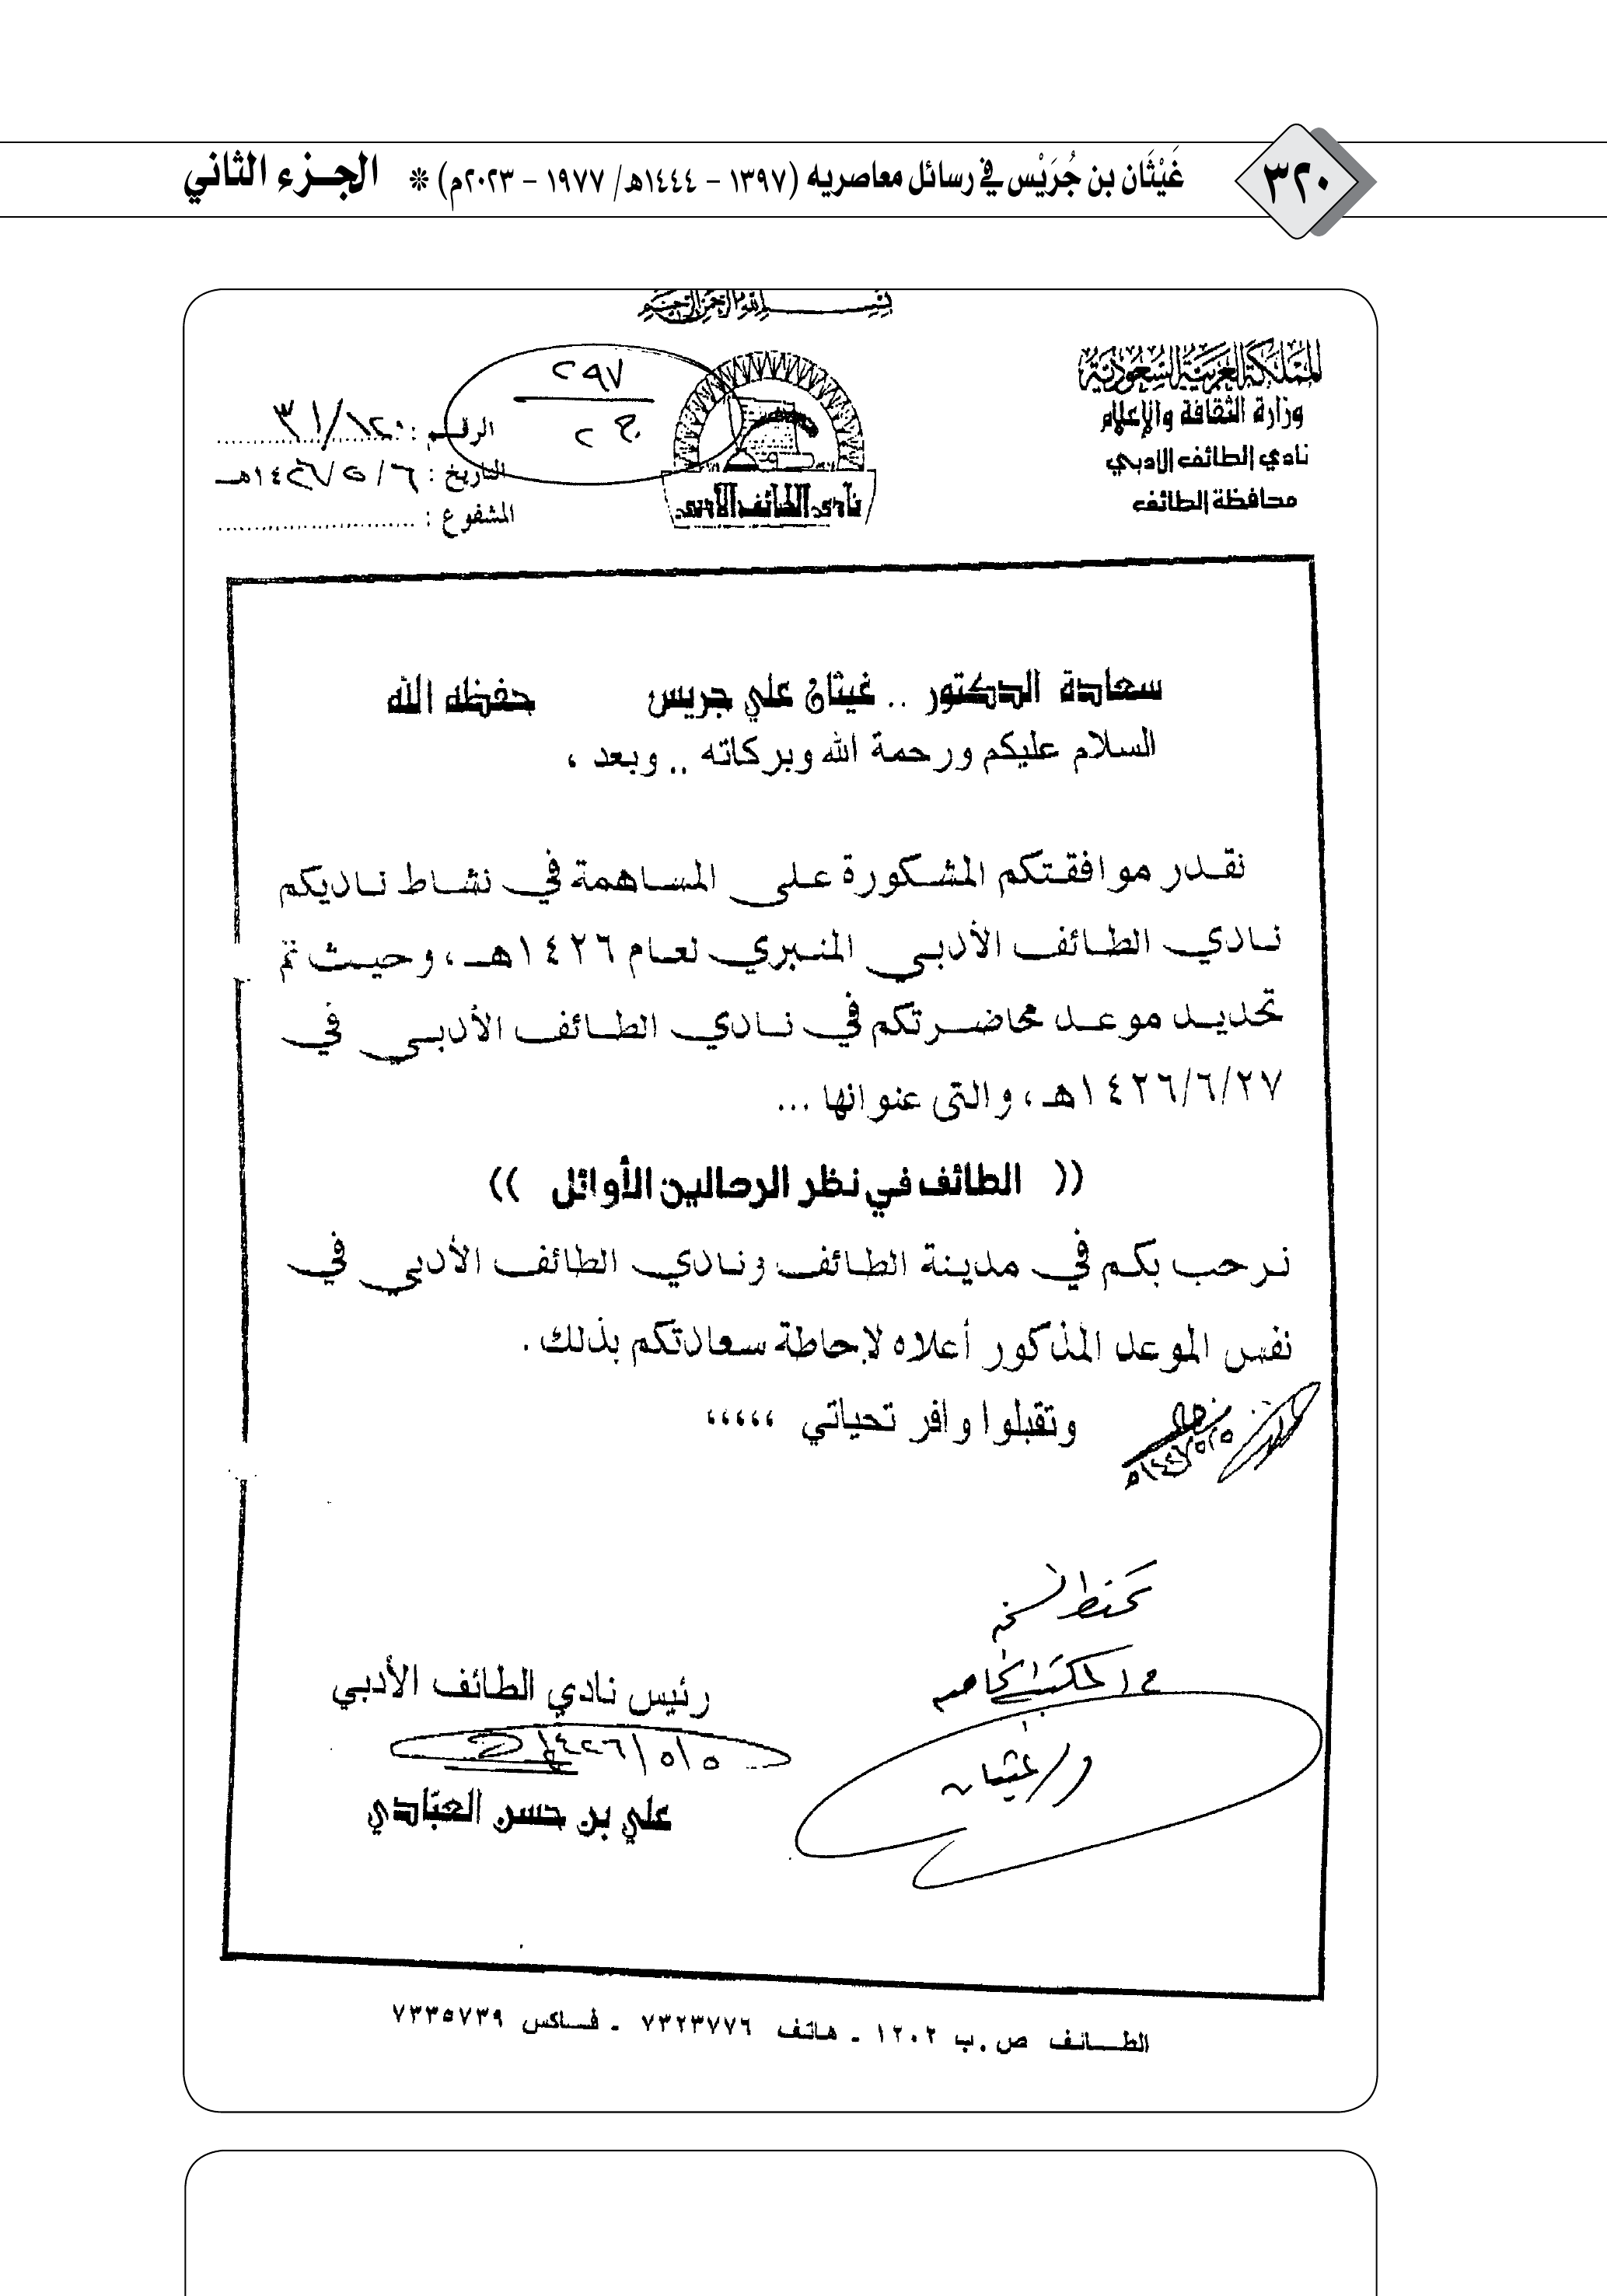 ٣٢٠
غَيْثَان بن جُرَيْس في رسائل معاصريه (١٣٩٧ - ١٤٤٤هـ/ ١٩٧٧ - ٢٠٢٣م) * الجزء الثاني
بسم الله الرحمن الرحيم
المملكة العربية السعودية
وزارة الثقافة والإعلام
نادي الطائف الادبي
محافظة الطائف
نادي الطائف الأدبي
٢٩٧
ج ٢
الرقم : ١٢٠/٣١
التاريخ : ٦/٥/١٤٢٦هـ
المشفوع :
سعادة الدكتور .. غيثان علي جريس حفظه الله
السلام عليكم ورحمة الله وبركاته .. وبعد ،
نقدر موافقتكم المشكورة على المساهمة في نشاط ناديكم
نادي الطائف الأدبي المنبري لعام ١٤٢٦هـ ، وحيث تم
تحديد موعد محاضرتكم في نادي الطائف الأدبي في
١٤٢٦/٦/٢٧هـ ، والتي عنوانها ...
(( الطائف في نظر الرحالين الأوائل ))
نرحب بكم في مدينة الطائف ونادي الطائف الأدبي في
نفس الموعد المذكور أعلاه لإحاطة سعادتكم بذلك .
وتقبلوا وافر تحياتي ،،،،،
تحفظ النسخة
في المكتبة الخاصة
د/ غيثان
رئيس نادي الطائف الأدبي
٥/٥/١٤٢٦
علي بن حسن العبّادي
الطــائف ص.ب ١٢٠٢ ـ هاتف ٧٣٢٣٧٧٦ ـ فــاكس ٧٣٣٥٧٣٩